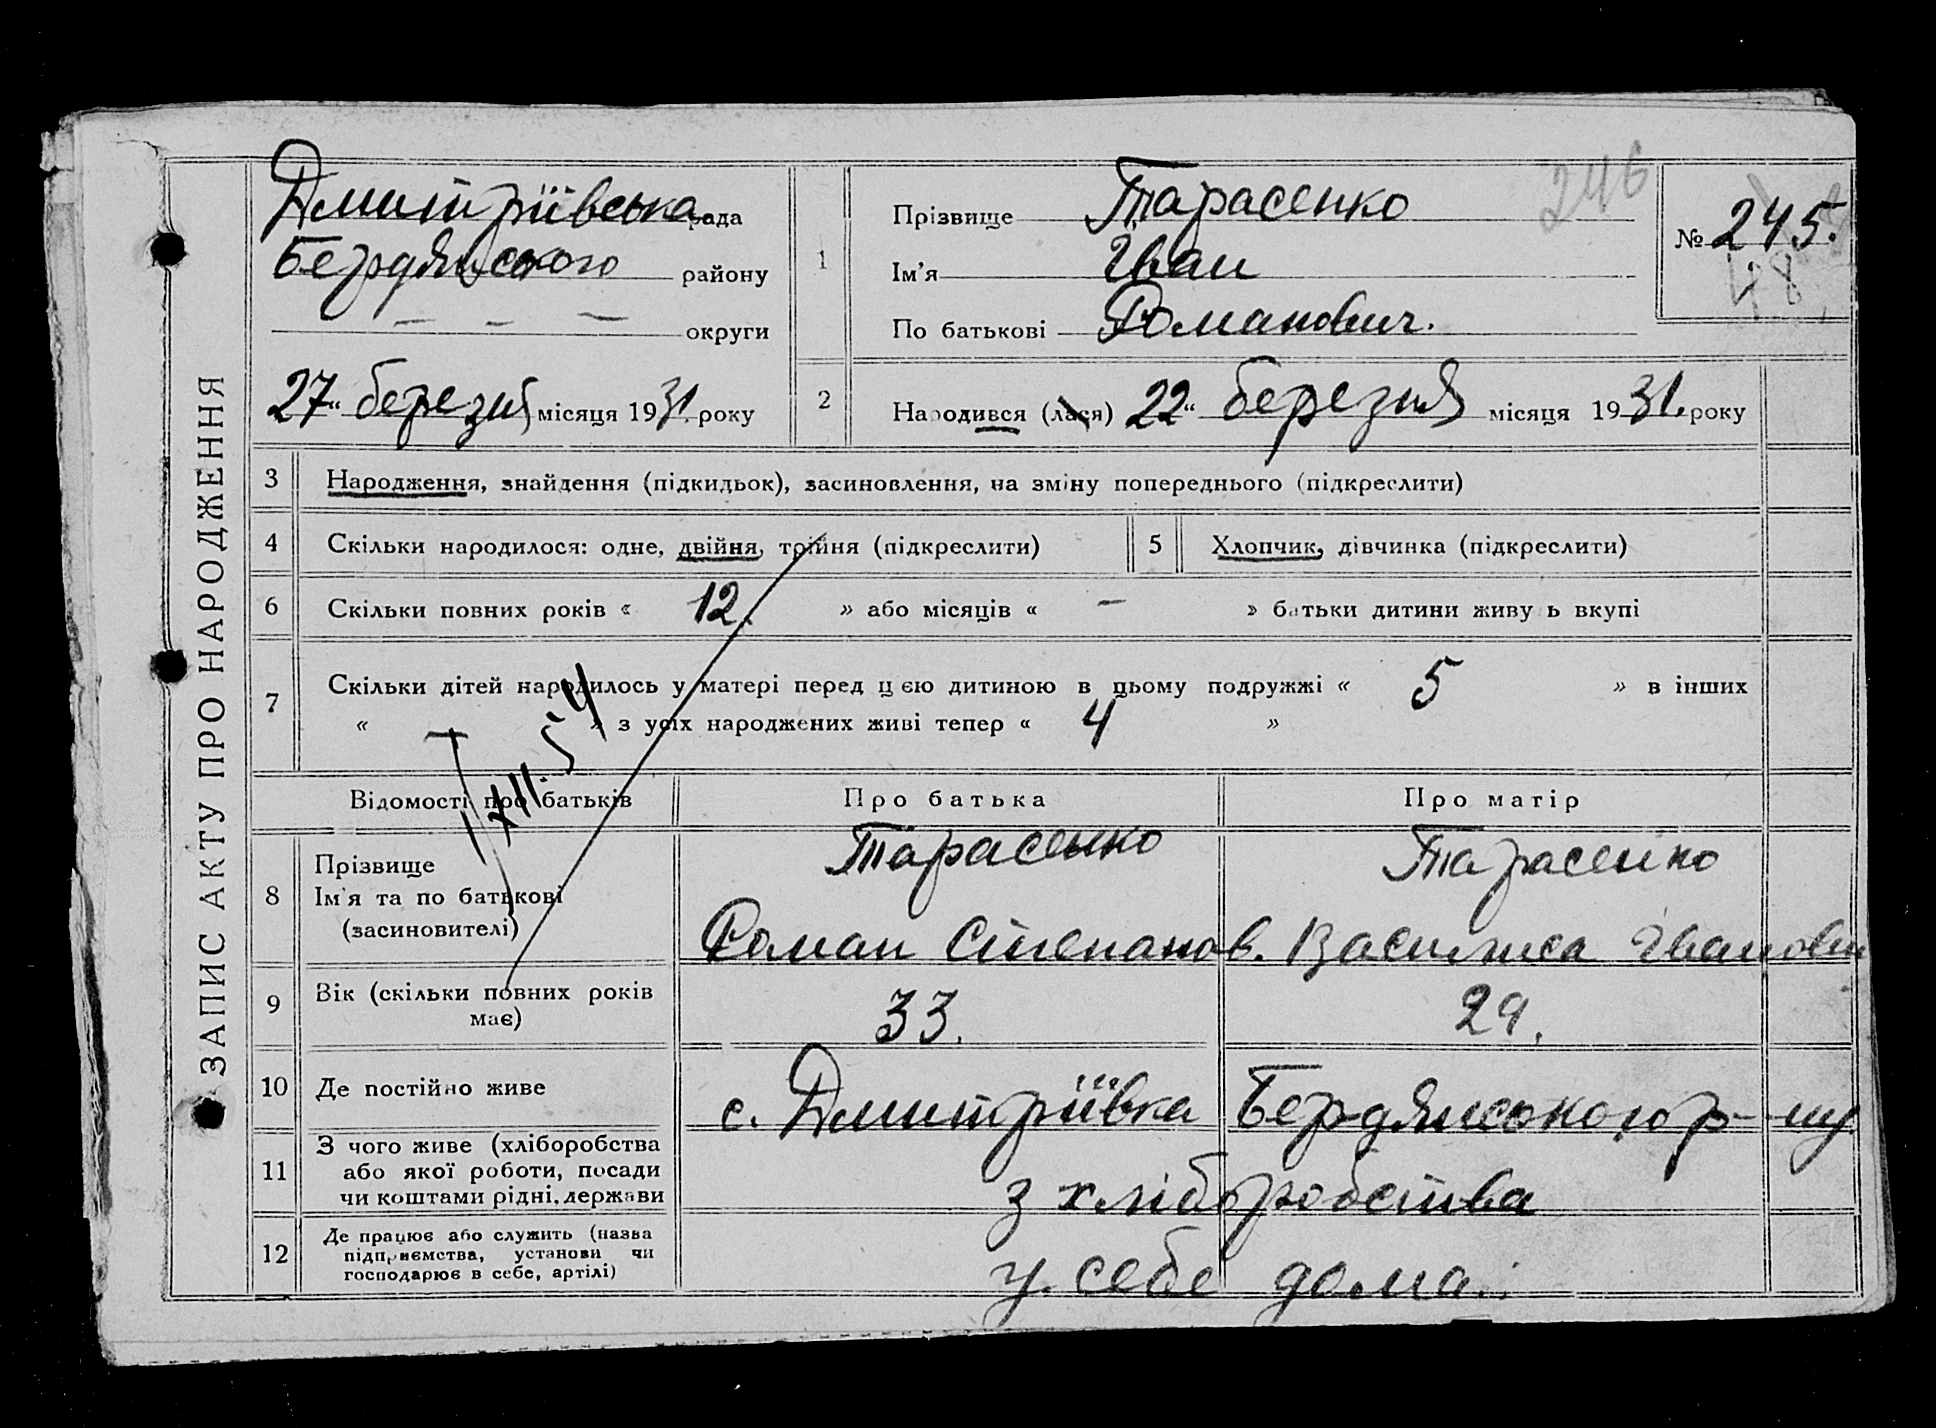 ЗАПИС АКТУ ПРО НАРОДЖЕННЯ
Дмитріївська рада
Бердянського району
— — — округи
27 " березня місяця 1931 року
1
Прізвище Тарасенко
Ім'я Іван
По батькові Романович.
246
№ 245.
48
2 Народився (лася) 22 " березня місяця 1931. року
3 Народження, знайдення (підкидьок), засиновлення, на зміну попереднього (підкреслити)
4 Скільки народилося: одне, двійня, трійня (підкреслити)
5 Хлопчик, дівчинка (підкреслити)
6 Скільки повних років « 12. » або місяців « — » батьки дитини живуть вкупі
7 Скільки дітей народилось у матері перед цією дитиною в цьому подружжі « 5 » в інших
« » з усіх народжених живі тепер « 4 »
1 XII. 54
Відомості про батьків Про батька Про матір
8 Прізвище
Ім'я та по батькові
(засиновителі)
Тарасенко
Роман Степанов.
Тарасенко
Василиса Іванови
9 Вік (скільки повних років
має)
33.
29.
10 Де постійно живе
с. Дмитріївка Бердянського р-ну
11 З чого живе (хліборобства
або якої роботи, посади
чи коштами рідні, держави
з хліборобства
12 Де працює або служить (назва
підприємства, установи чи
господарює в себе, артілі)
у себе дома.